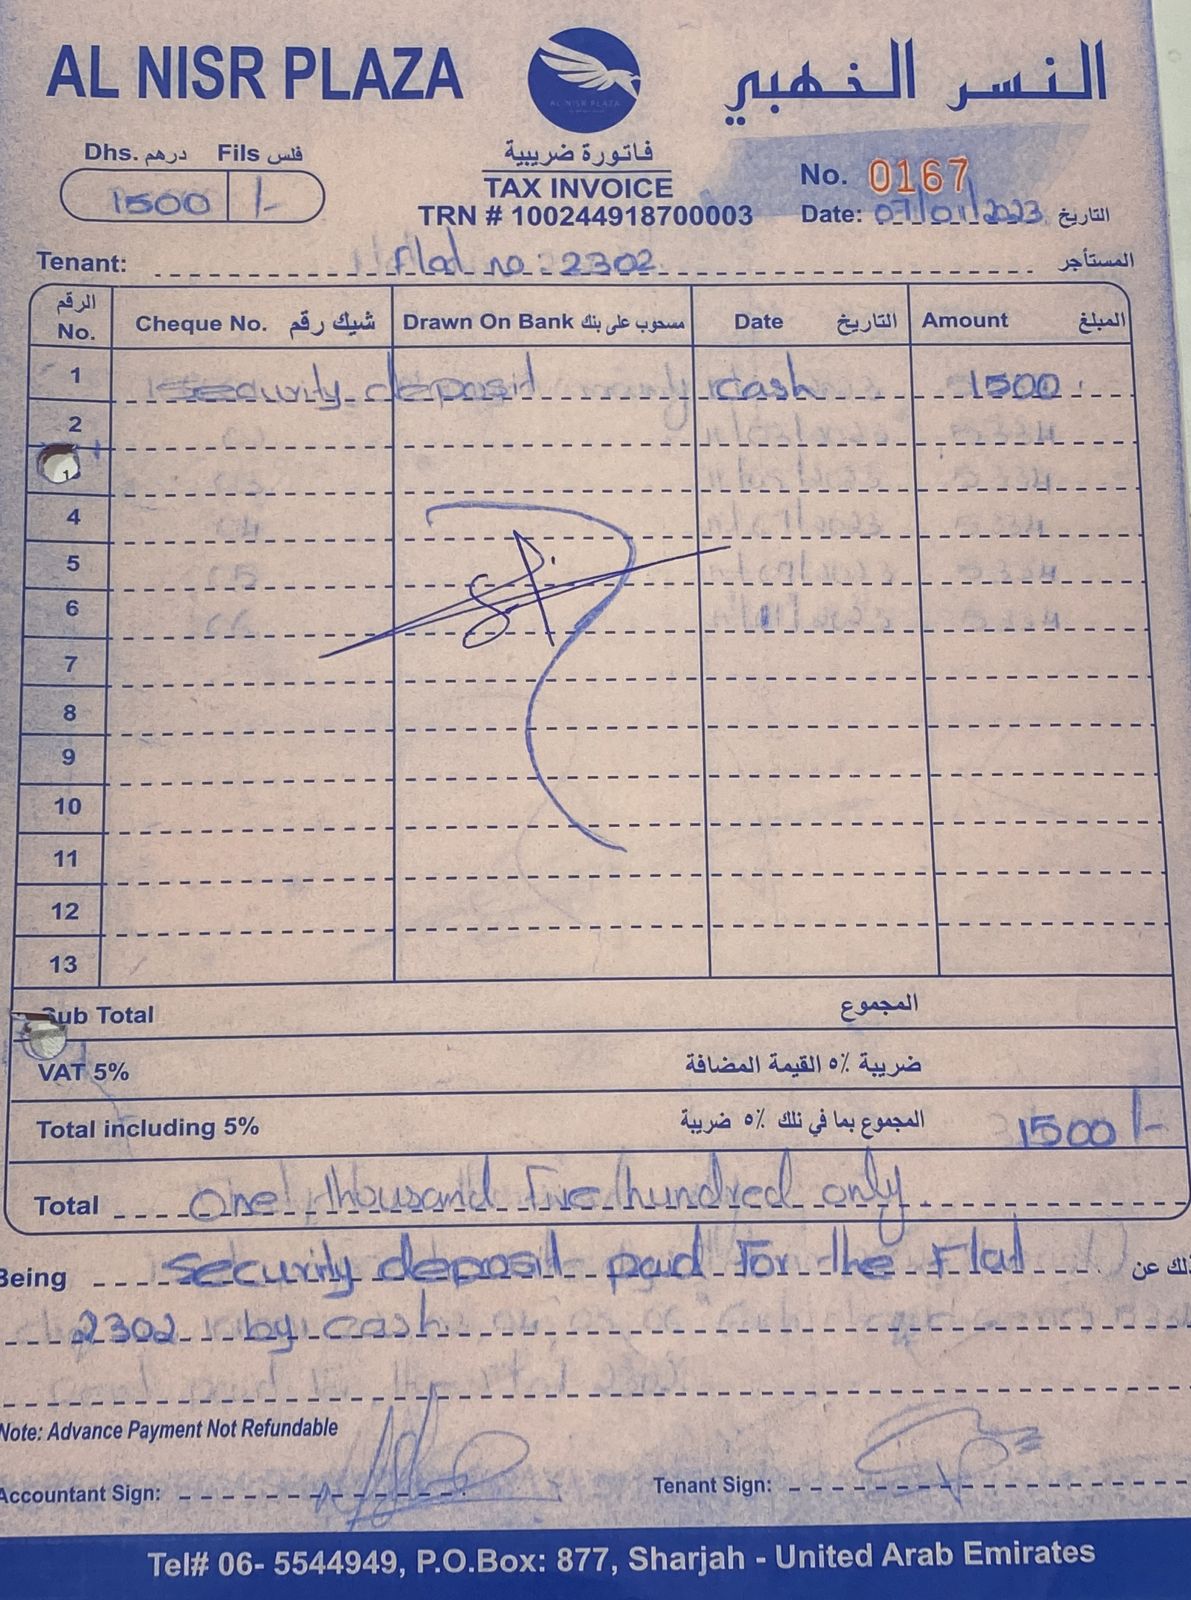 AL NISR PLAZA
النسر الذهبي
AL NISR PLAZA
Dhs. درهم Fils فلس
1500 /-
فاتورة ضريبية
TAX INVOICE
TRN # 100244918700003
No. 0167
Date: 07/01/2023 التاريخ
Tenant: Flat no : 2302 المستأجر
الرقم No. Cheque No. شيك رقم Drawn On Bank مسحوب على بنك Date التاريخ Amount المبلغ
1 security deposit cash 1500
2
4
5
6
7
8
9
10
11
12
13
Sub Total المجموع
VAT 5% ضريبة ٥٪ القيمة المضافة
Total including 5% المجموع بما في ذلك ٥٪ ضريبة 1500 /-
Total One thousand Five hundred only
Being security deposit paid For the Flat ذلك عن
2302 by cash
Note: Advance Payment Not Refundable
Accountant Sign: Tenant Sign:
Tel# 06- 5544949, P.O.Box: 877, Sharjah - United Arab Emirates